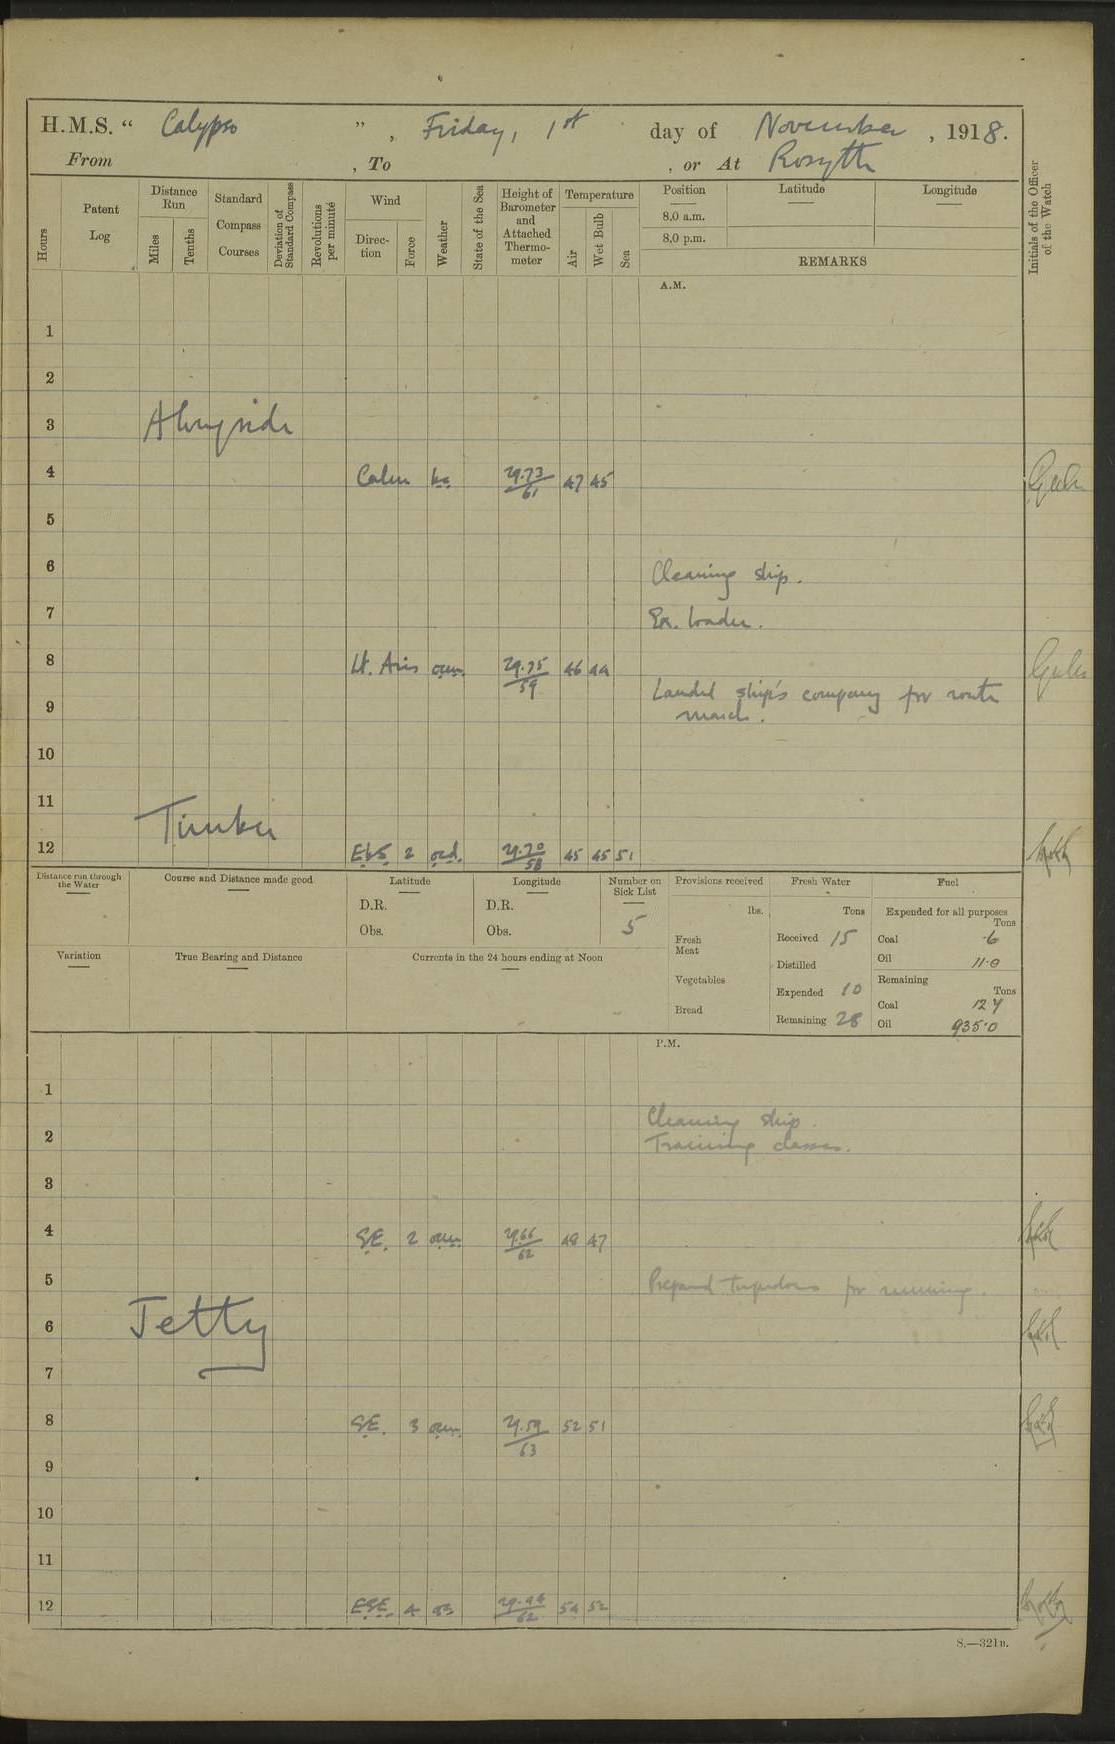 H.M.S. “ Calypso ” , Friday, 1st day of November , 1918.
From , To , or At Rosyth
Hours
Patent Log
Distance Run
Miles
Tenths
Standard Compass Courses
Deviation of Standard Compass
Revolutions per minute
Wind
Direction
Force
Weather
State of the Sea
Height of Barometer and Attached Thermometer
Temperature
Air
Wet Bulb
Sea
Position
8.0 a.m.
8.0 p.m.
Latitude
Longitude
REMARKS
Initials of the Officer of the Watch
A.M.
1
2
3 Alongside
4 Calm bc 29.73/61 47 45
5
6 Cleaning ship.
7 Ex. loader.
8 Lt. Airs oum 29.75/59 46 44
Landed ship's company for route
9 march.
10
11
Timber
12 EbS. 2 ocd. 29.70/58 45 45 51
Distance run through the Water
Course and Distance made good
Latitude
D.R.
Obs.
Longitude
D.R.
Obs.
Number on Sick List
5
Provisions received
lbs.
Fresh Meat
Vegetables
Bread
Fresh Water
Tons
Received 15
Distilled
Expended 10
Remaining 28
Fuel
Expended for all purposes
Tons
Coal .6
Oil 11.0
Remaining
Tons
Coal 127
Oil 935.0
Variation
True Bearing and Distance
Currents in the 24 hours ending at Noon
P.M.
1
Cleaning ship.
2 Training classes.
3
4 SE. 2 oum 29.66/62 48 47
5 Prepared torpedoes for running.
6 Jetty
7
8 SE. 3 oum. 29.59/63 52 51
9
10
11
12 ESE. 4 29.44/62 54 52
S.—321B.